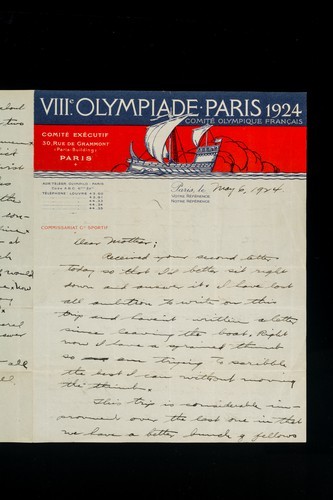 VIIIe OLYMPIADE · PARIS 1924
COMITÉ OLYMPIQUE FRANÇAIS
COMITÉ EXÉCUTIF
30, RUE DE GRAMMONT
(Paris-Building)
PARIS
Paris, le May 6, 1924.
NOTRE RÉFÉRENCE
VOTRE RÉFÉRENCE
ADR. TÉLÉGR. OLYMPIC - PARIS
TÉLÉPHONE: LOUVRE
COMMISSARIAT Gal SPORTIF
Dear Mother;
Received your second letter
today so that I'd better sit right
down and answer it. I have lost
all ambition to write on this
trip and havent written a letter
since leaving the boat. Right
now I have a sprained thumb
so am trying to scribble
the best I can without moving
the thumb.
This trip is considerable im-
provement over the last one in that
we have a better bunch of fellows
about
two
would
how
all